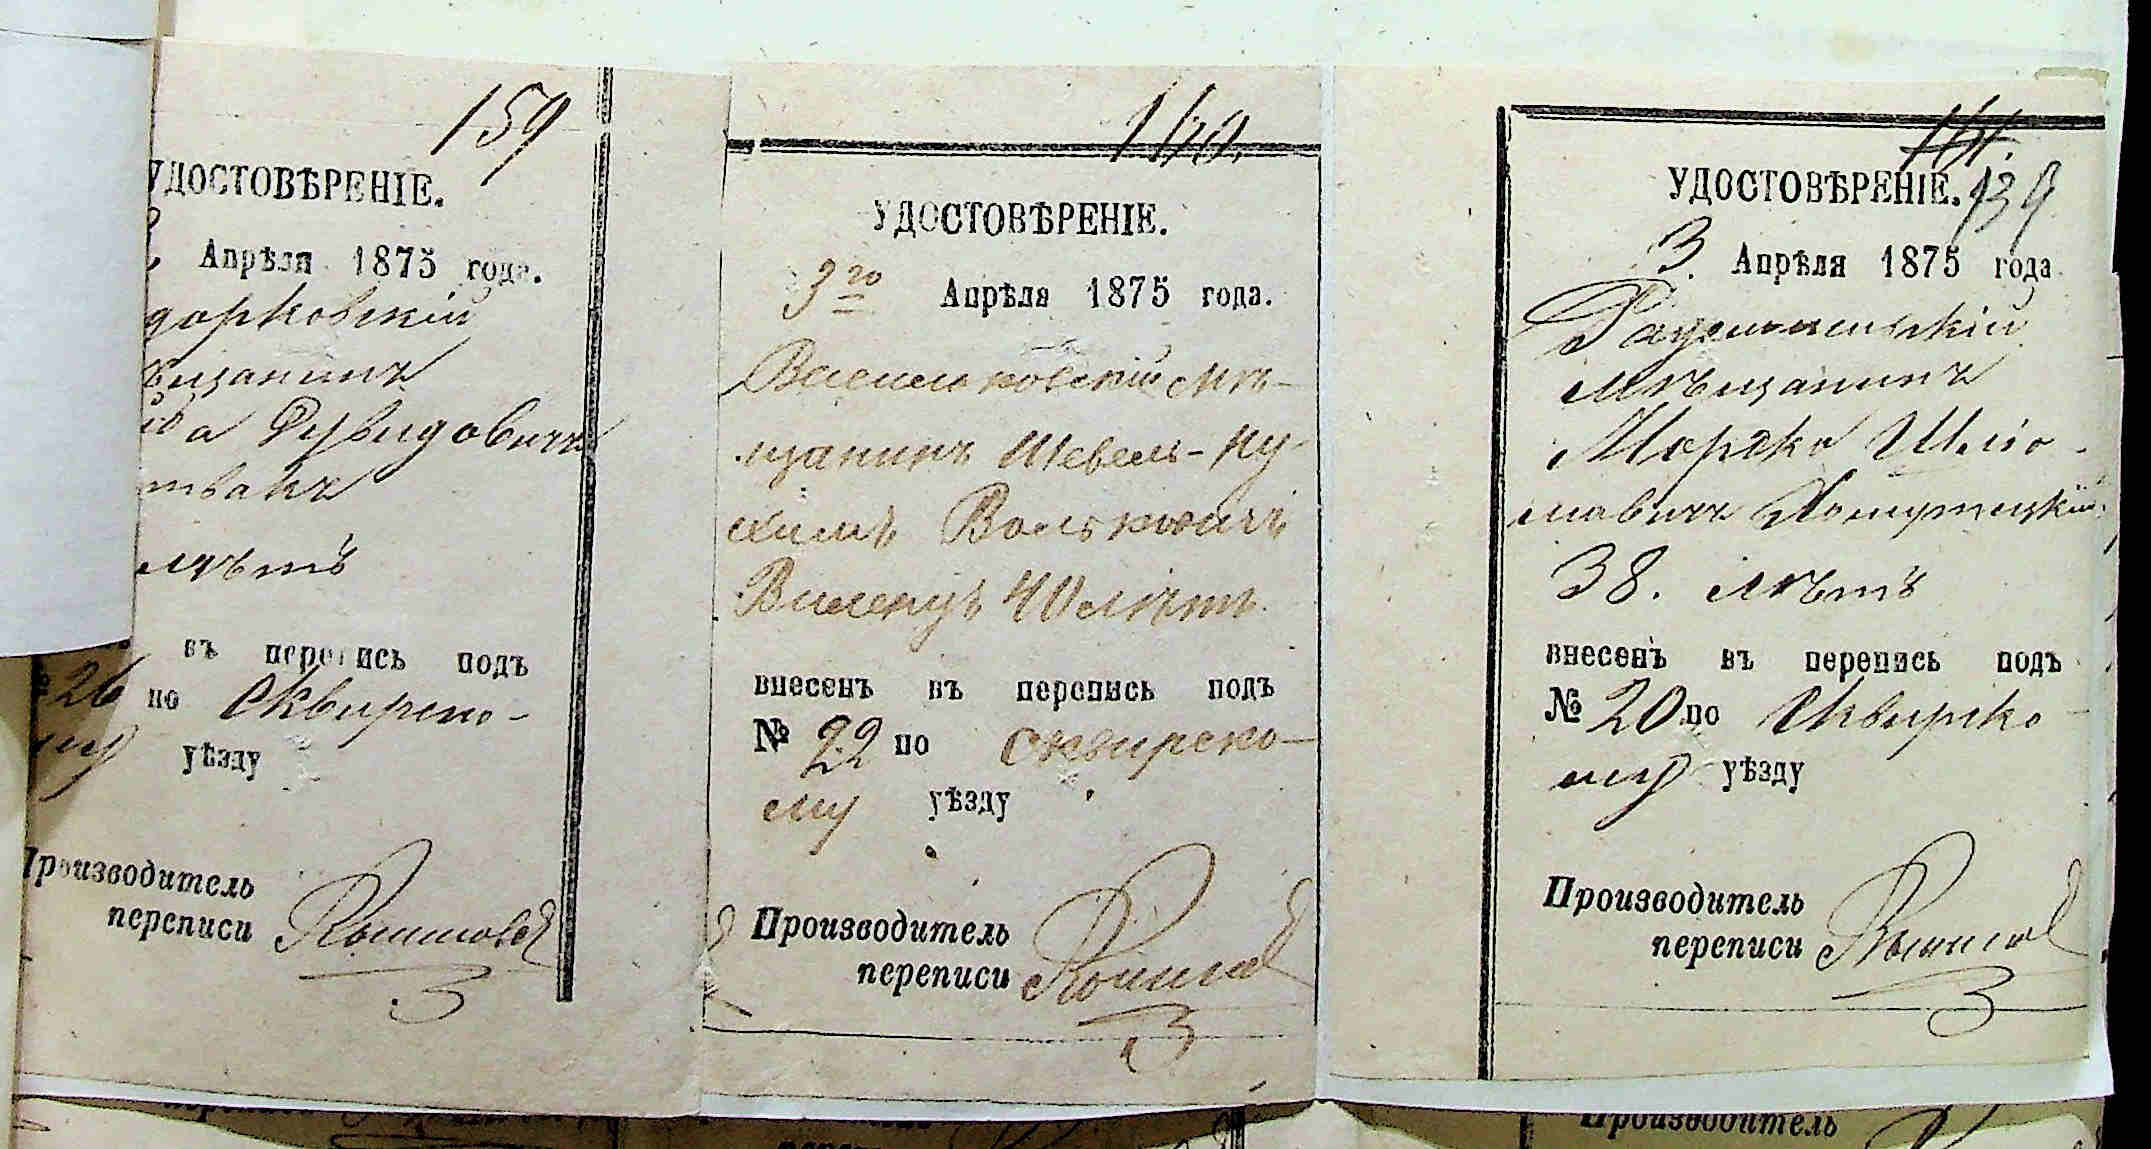 159
УДОСТОВѢРЕНІЕ.
Апрѣля 1875 года.
дорковскій
ѣщанинъ
Дувидовичъ
лѣтъ
въ перепись подъ
№ 26 по Сквирско-
му уѣзду
Производитель
переписи
160.
УДОСТОВѢРЕНІЕ.
3го Апрѣля 1875 года.
Васильковскій мѣ-
щанинъ Шевель-Ну-
химъ Вольковичъ
40 лѣтъ
внесенъ въ перепись подъ
№ 22 по Сквирско-
му уѣзду
Производитель
переписи
161.
УДОСТОВѢРЕНІЕ. 139
3 Апрѣля 1875 года
Радомысльскій
мѣщанинъ
Мордко Шлио-
мовичъ
38. лѣтъ
внесенъ въ перепись подъ
№ 20 по Сквирско-
му уѣзду
Производитель
переписи
Производитель